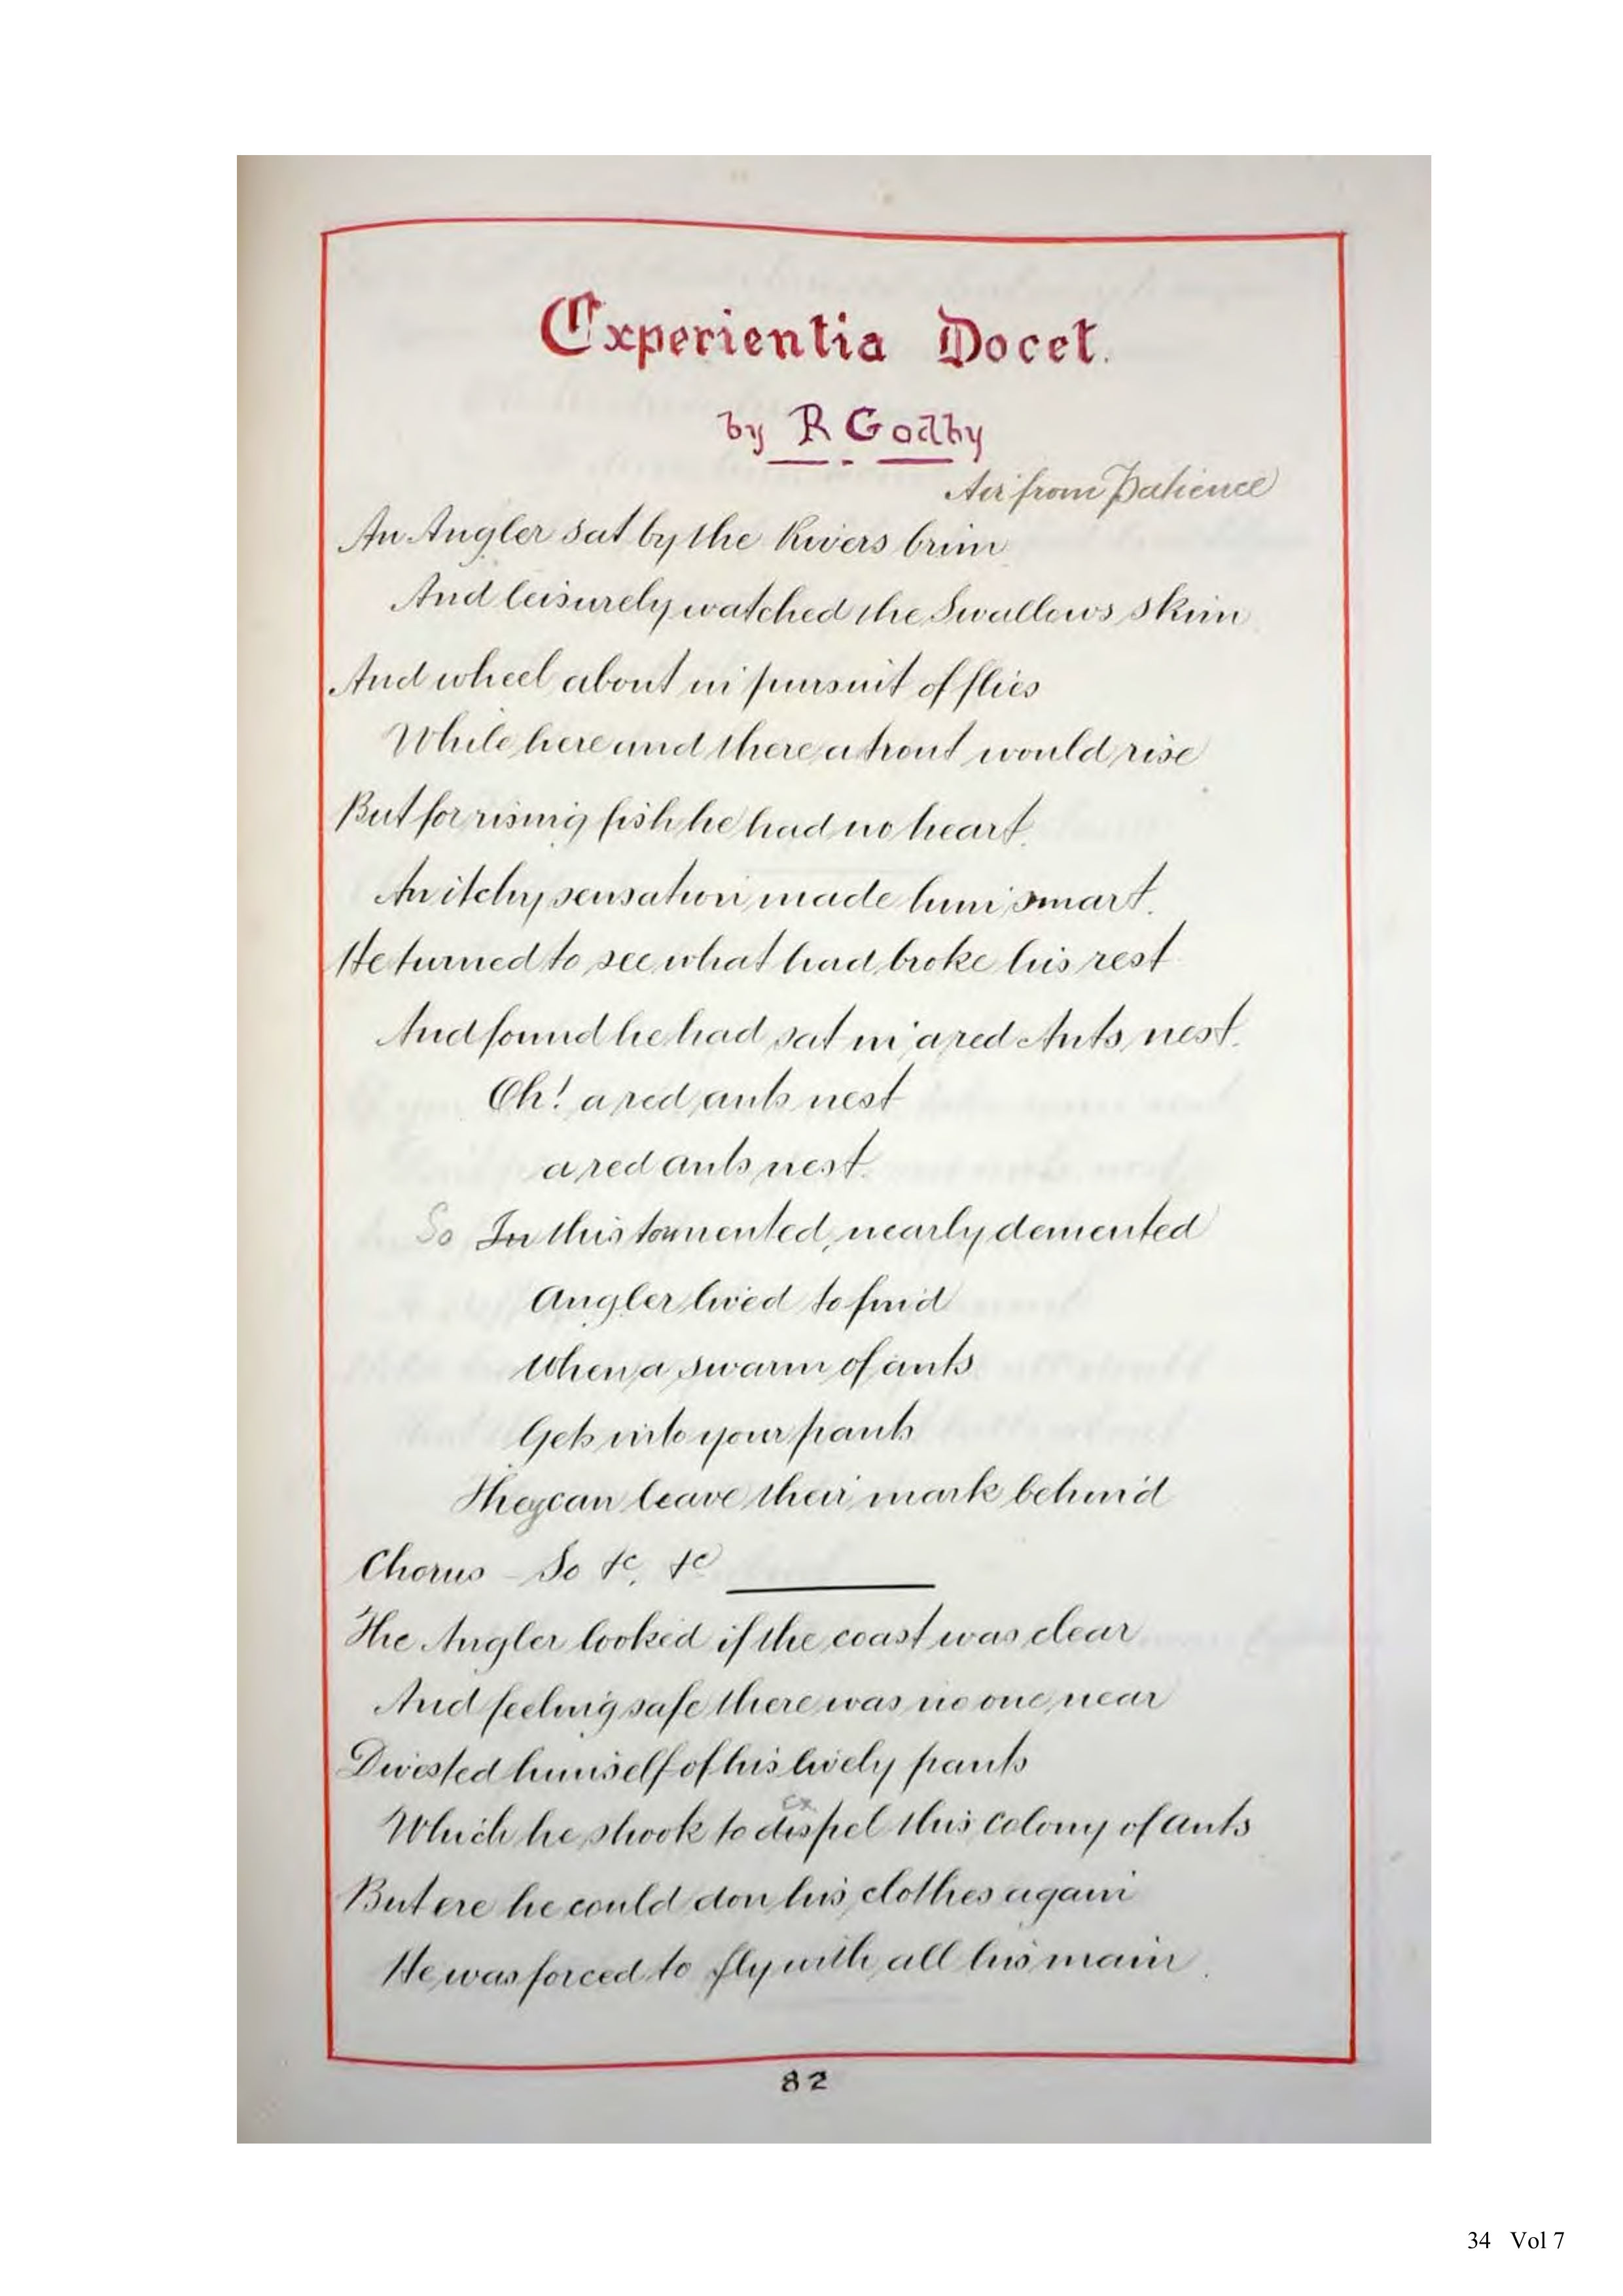 Experientia Docet.
by R Godby
Air from Patience
An Angler sat by the Rivers brim
And leisurely watched the Swallows skim
And wheel about in pursuit of flies
While here and there a trout would rise
But for rising fish he had no heart.
An itchy sensation made him smart.
He turned to see what had broke his rest
And found he had sat in a red Ants nest.
Oh! a red ants nest
a red ants nest.
So In this tormented, nearly demented
Angler lived to find
When a swarm of ants
Gets into your pants
They can leave their mark behind
Chorus - So &c, &c
The Angler looked if the coast was clear
And feeling safe there was no one near
Divested himself of his lively pants
ex
Which he shook to dispel this colony of ants
But ere he could don his clothes again
He was forced to fly with all his main.
82
34 Vol 7